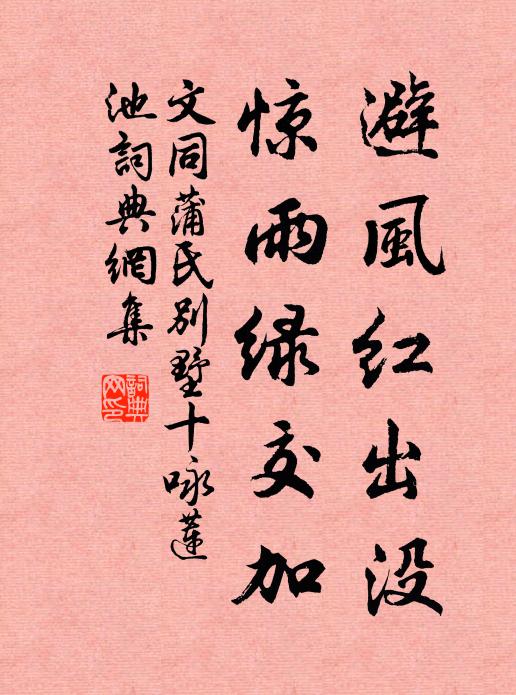 避風红出没
惊雨绿交加
文同蒲氏别墅十咏蓮
池詞典網集
詞典
网印